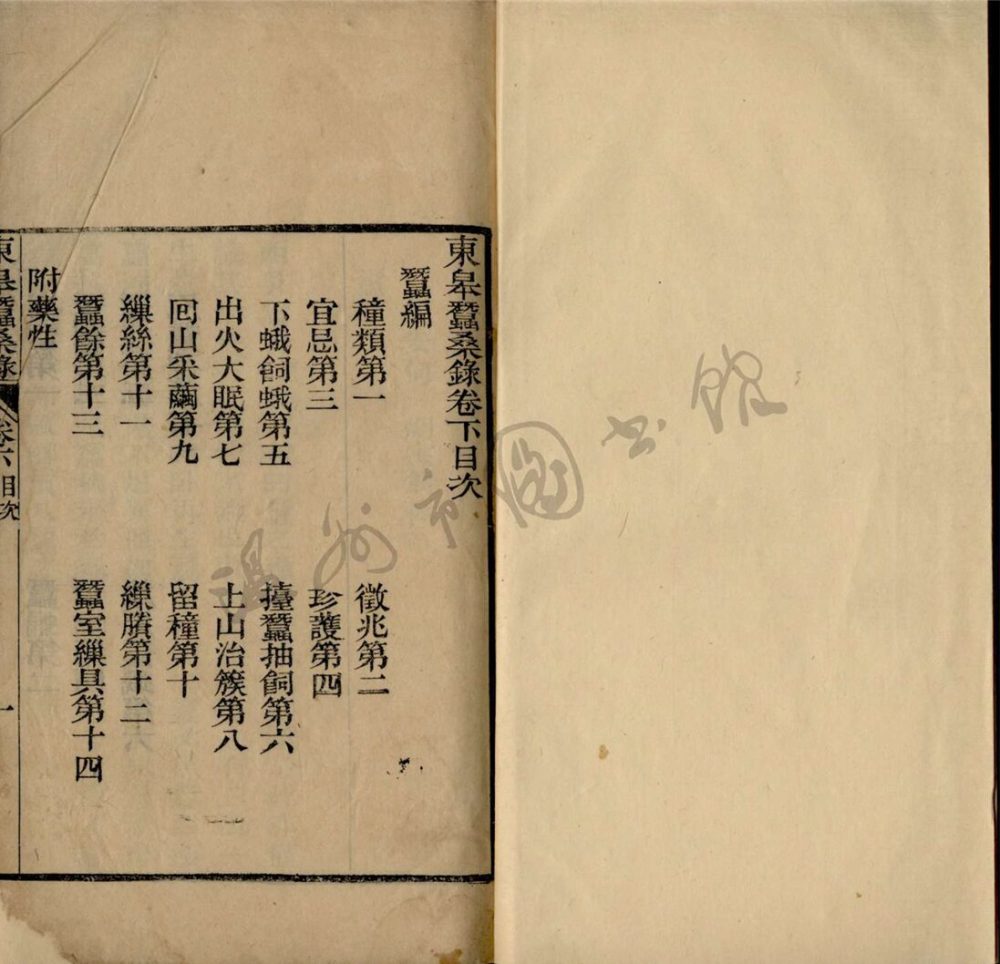 東皐蠶桑錄卷下目次
蠶編
穜類第一　徵兆第二
宜忌第三　珍護第四
下蛾飼蛾第五　擡蠶抽飼第六
出火大眠第七　上山治簇第八
回山采繭第九　留穜第十
繅絲第十一　繅賸第十二
蠶餘第十三　蠶室繅具第十四
附藥性
東皐蠶桑錄　卷下目次　一
温州市圖书馆